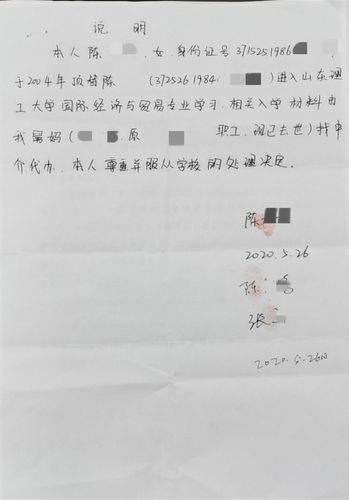 说 明
本人陈，女，身份证号 3715251986，
于2004年顶替陈（3725261984）进入山东理
工大学国际经济与贸易专业学习，相关入学材料由
我舅妈（，原 职工，现已去世）找中
介代办，本人尊重并服从学校的处理决定。
陈
2020.5.26
陈
张
2020.5.26日